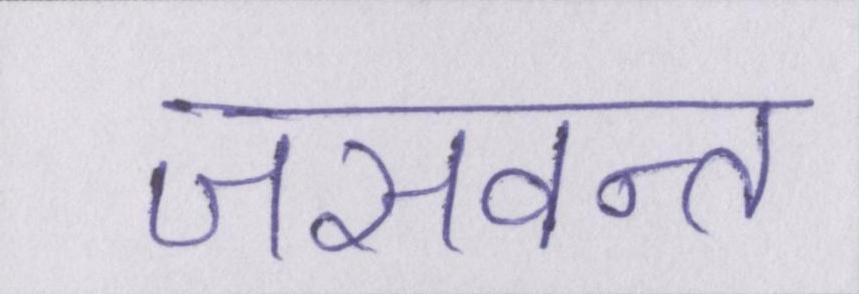 जसवन्त